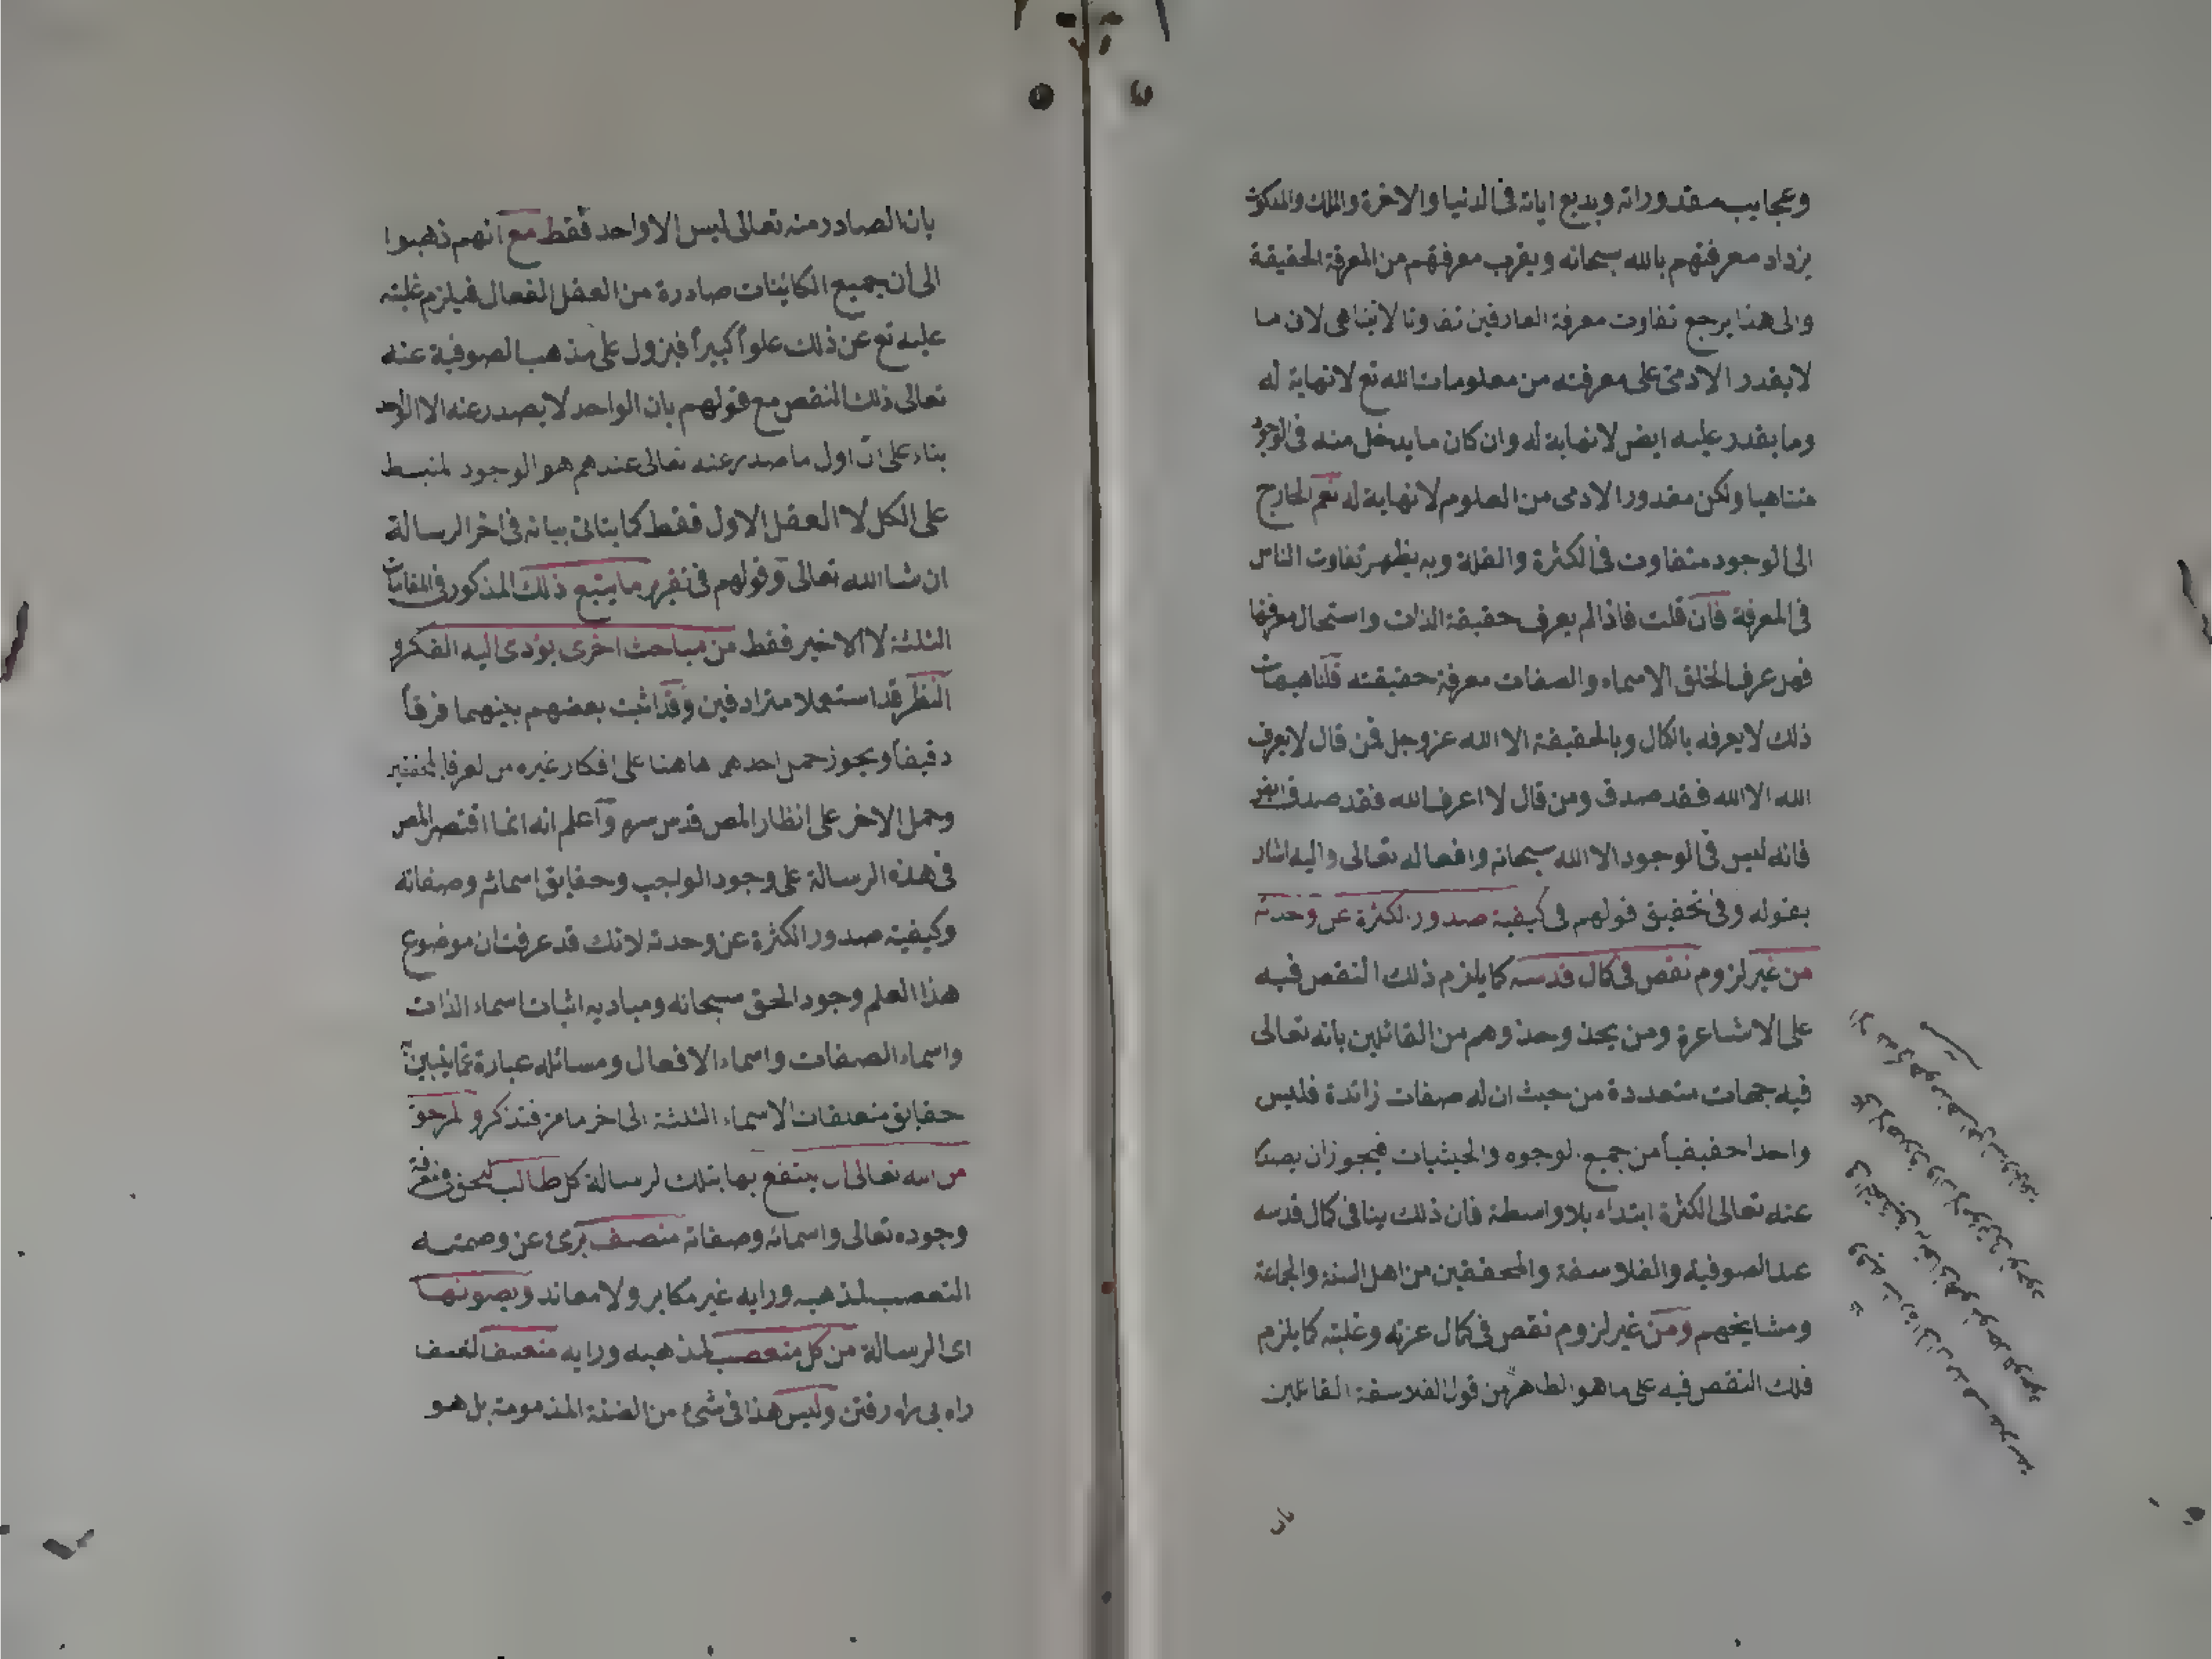 وعجايب مقدوراته وبديع اياته فى الدنيا والاخرة والملك والملكوت
يزداد معرفتهم بالله سبحانه ويقرب معرفتهم من المعرفة الحقيقة
والى هذا يرجع تفاوت معرفة العارفين تفاوتا لا يتناهى لان ما
لا يقدر الادمى على معرفته من معلومات الله تع لا نهاية له
وما يقدر عليه ايض لا نهاية له وان كان ما يدخل منه فى الوجود
متناهيا ولكن مقدور الادمى من العلوم لا نهاية له نعم الخارج
الى الوجود متفاوت فى الكثرة والقلة وبه يظهر تفاوت الناس
فى المعرفة فان قلت فاذا لم يعرف حقيقة الذات واستحال معرفتها
فهل عرف الخلق الاسماء والصفات معرفة حقيقته قلنا هيهات
ذلك لا يعرفه بالكال وبالحقيقة الا الله عز وجل فمن قال لا يعرف
الله الا الله فقد صدق ومن قال لا اعرف الله فقد صدق ايض
فانه ليس فى الوجود الا الله سبحانه وافعاله تعالى واليه اشار
بقوله وفى تحقيق قولهم فى كيفية صدور الكثرة عن وحدته
من غير لزوم نقص فى كال قدسه كما يلزم ذلك النقص فيه
على الاشاعرة ومن يحذ وحذوهم من القائلين بانه تعالى
فيه جهات متعددة من حيث ان له صفات زائدة فليس
واحدا حقيقيا من جميع الوجوه والحيثيات فيجوز ان يصدر
عنه تعالى الكثرة ابتداء بلا واسطة فان ذلك ينافى كال قدسه
عند الصوفية والفلاسفة والمحققين من اهل السنة والجماعة
ومشايخهم ومن غير لزوم نقص فى كال عزته وغلبته كما يلزم
ذلك النقص فيه على ما هو الظاهر من قول الفلاسفة القائلين
بان الصادر منه تعالى ليس الا واحد فقط مع انهم ذهبوا
الى ان جميع الكائنات صادرة من العقل الفعال فيلزم غلبته
عليه تع عن ذلك علوا كبيرا فيزول على مذهب الصوفية عنه
تعالى ذلك النقص مع قولهم بان الواحد لا يصدر عنه الا الواحد
بناء على ان اول ما صدر عنه تعالى عندهم هو الوجود المنبسط
على الكل لا العقل الاول فقط كما يتاتى بيانه فى اخر الرسالة
ان شا الله تعالى وقولهم فى تقرير ما يتبع ذلك المذكور فى المقامات
الثلثة لا الاخير فقط من مباحث اخرى يؤدى اليه الفكر و
النظر قد استعملا مترادفين وقد اثبت بعضهم بينهما فرقا
دقيقا ويجوز حمل احدهما هاهنا على افكار غيره من العرفا المحققين
وحمل الاخر على انظار المص قدس سره واعلم انه انما اقتصر المص
فى هذه الرسالة على وجود الواجب وحقايق اسمائه وصفاته
وكيفية صدور الكثرة عن وحدته لانك قد عرفت ان موضوع
هذا العلم وجود الحق سبحانه ومباديه اثبات اسماء الذات
واسماء الصفات واسماء الافعال ومسائله عبارة عما يتبين
حقايق متعلقات الاسماء الثلثة الى اخر ما مر فتذكر والمرجو
من الله تعالى ان ينتفع بها بتلك الرسالة كل طالب للحق ومعرفة
وجوده تعالى واسمائه وصفاته منصف برئ عن وصمته
التعصب لمذهبه ورايه غير مكابر ولا معاند ويصونها
اى الرسالة من كل متعصب لمذهبه ورايه متعسف التعسف
راه بى راه رفتن وليس هذا فى شئ من الضنة المذمومة بل هو